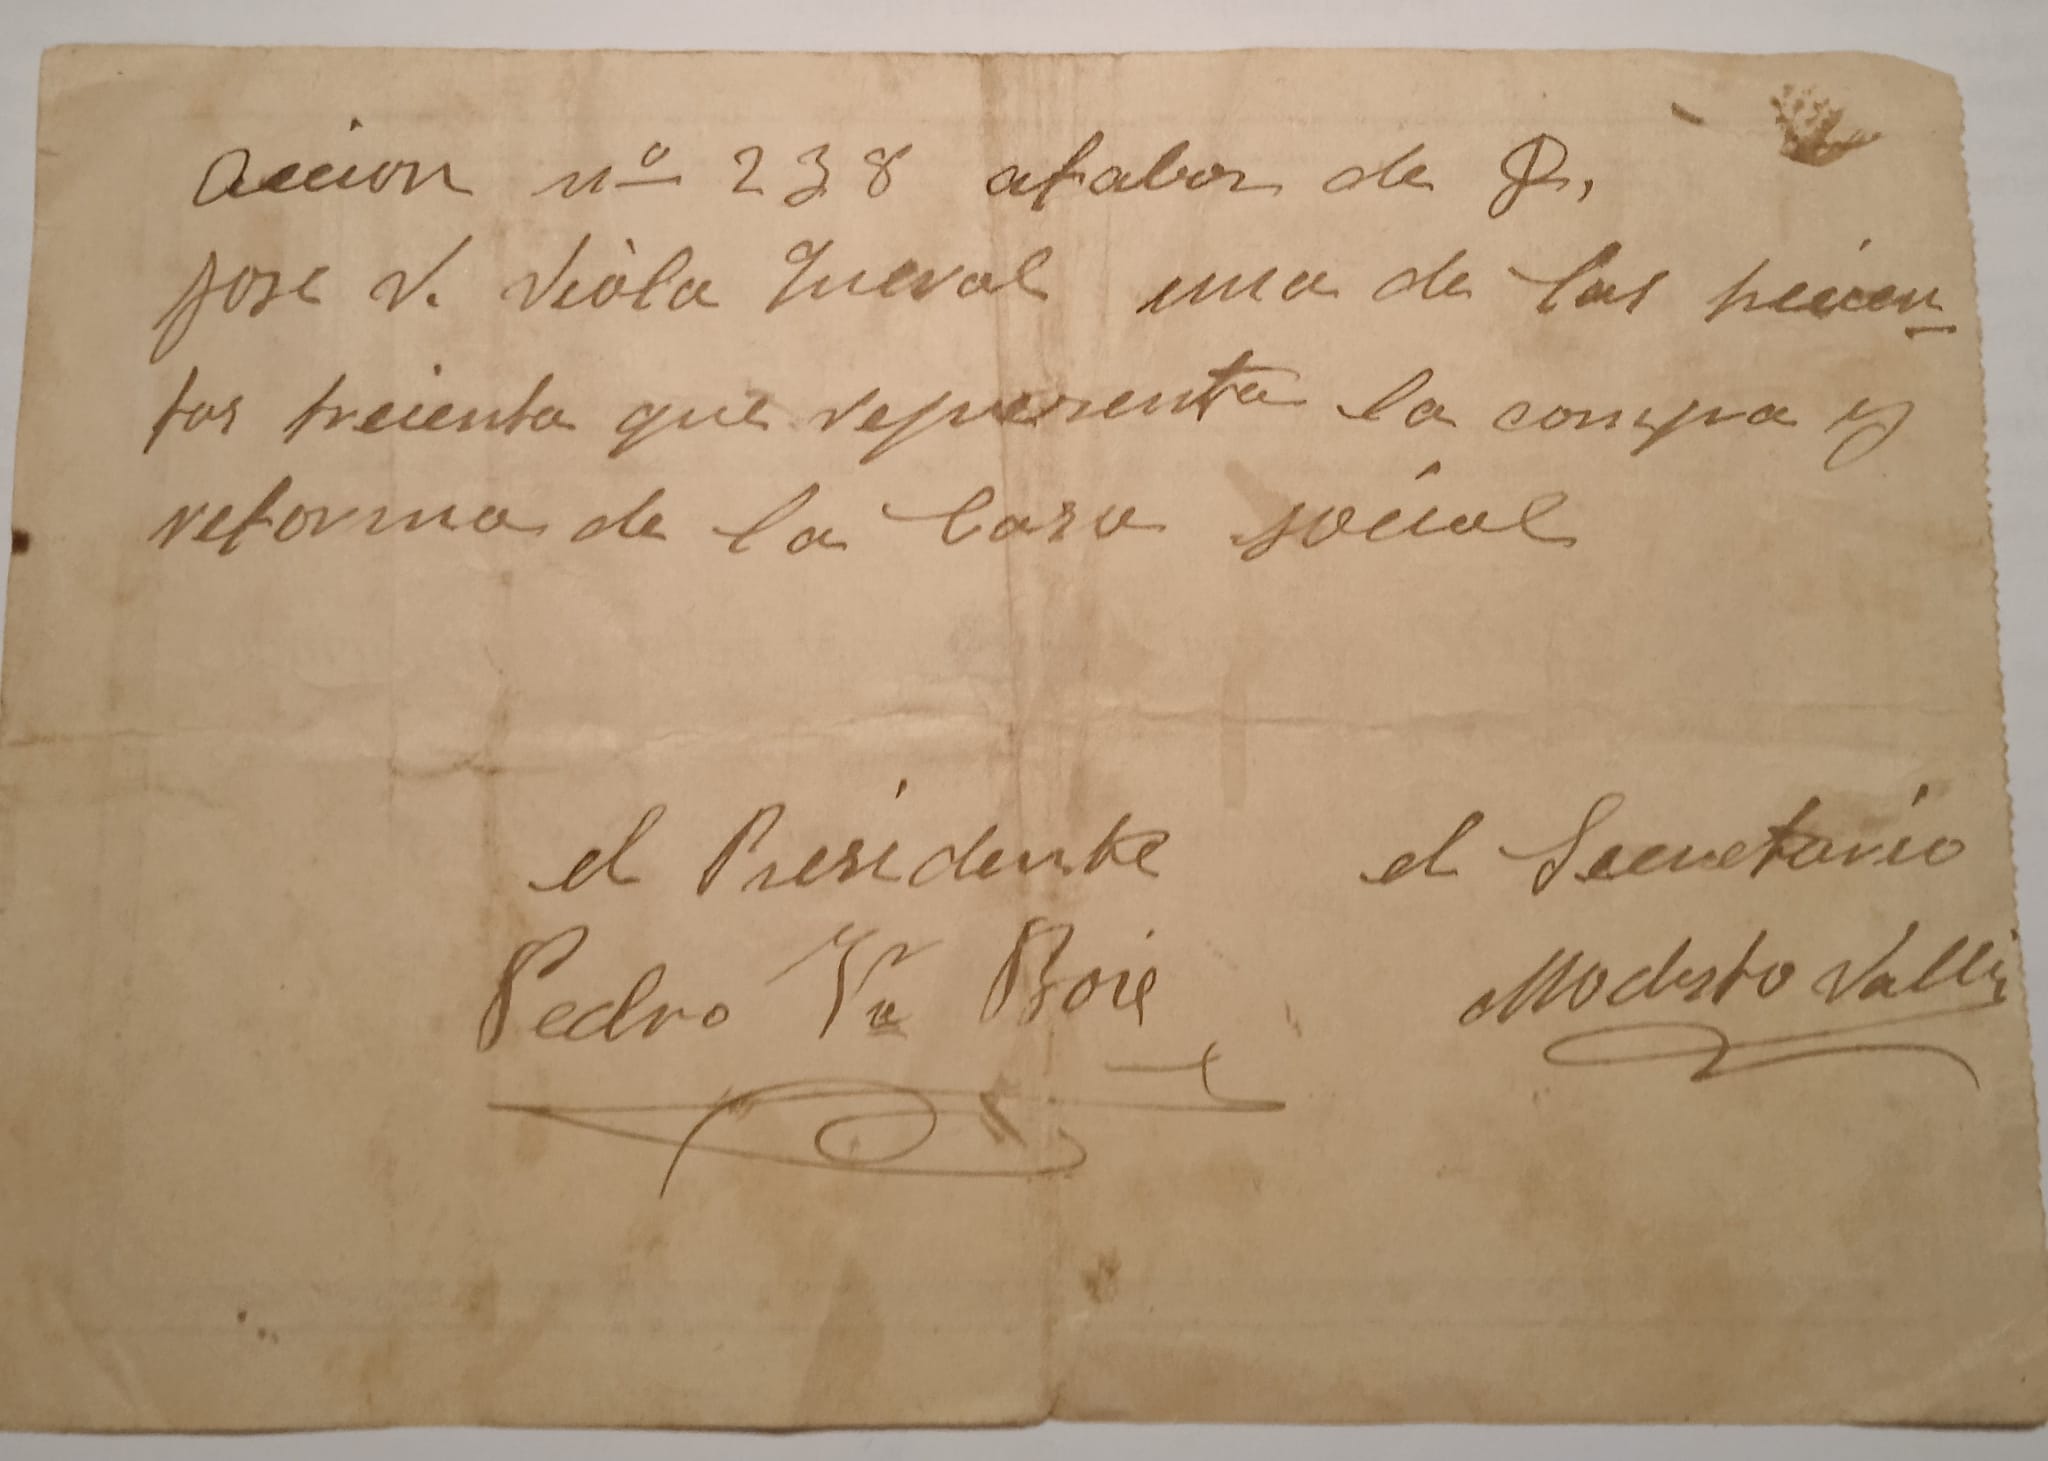 Accion nº 238 afabor de D.
Jose V. Viòla Queral una de las trecien-
tas treienta que representa la compra y
reforma de la Casa social
el Presidente el Secretario
Pedro Boié Modesto Vallés